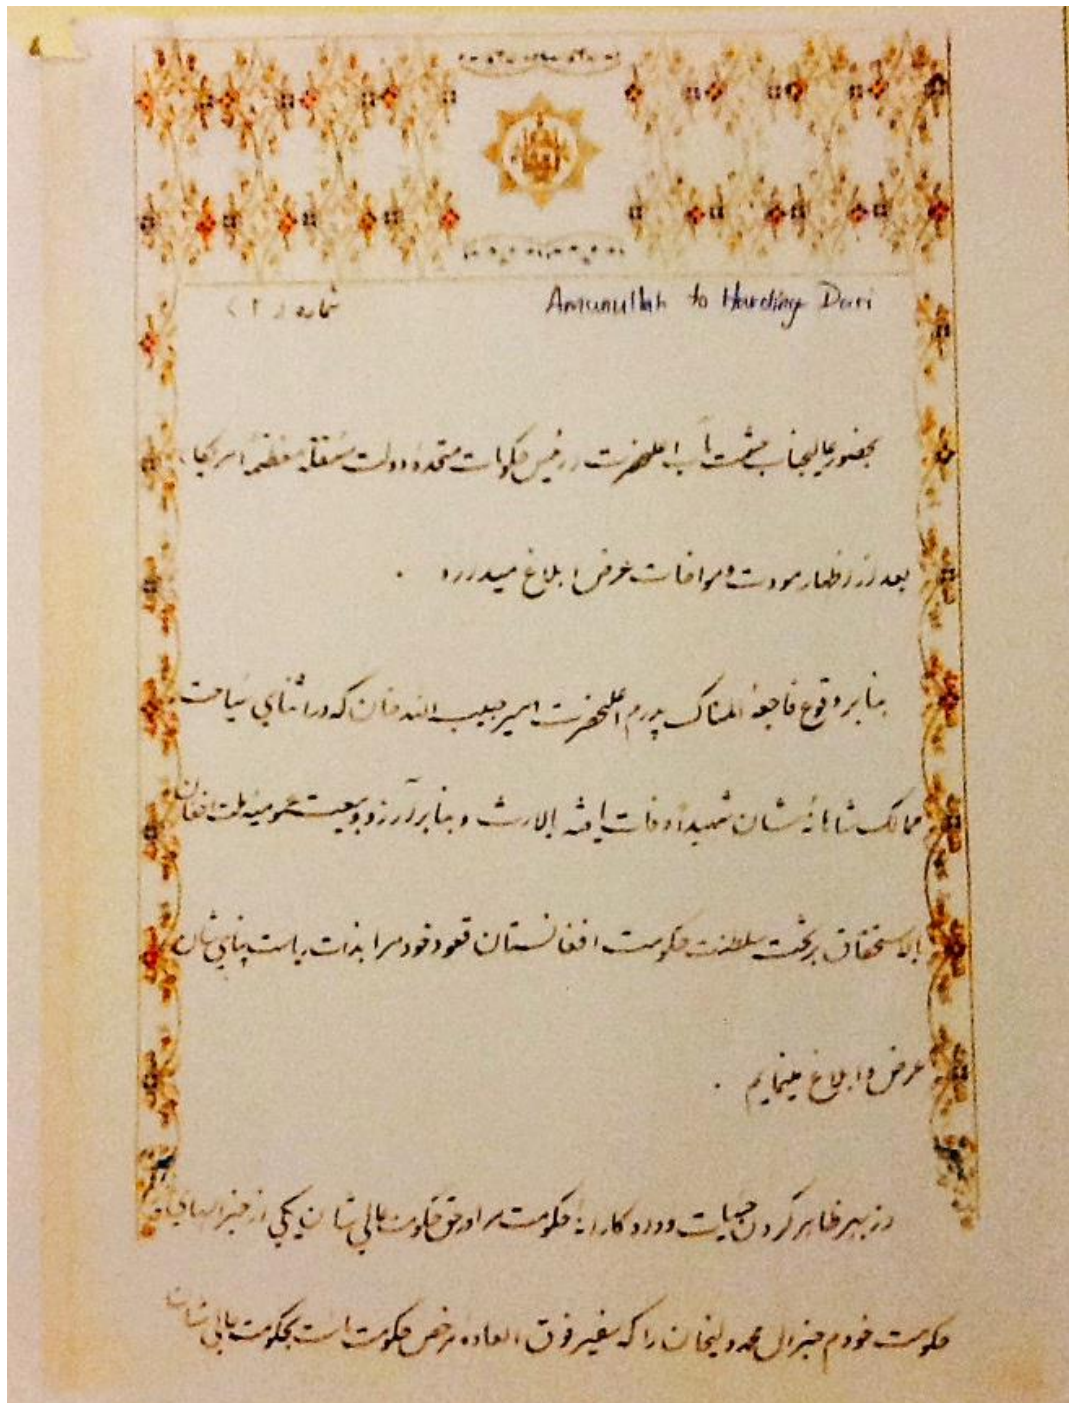 شماره (۲)
Amunullah to Harding Dari
بحضور عالیجناب حشمت مآب اعلیحضرت رئیس حکومات متحدهٔ دولت مستقلهٔ معظمهٔ امریکا،
بعد از اظهار مودت و مواخات عرض ابلاغ میدارد .
بنابر وقوع فاجعهٔ المناک پدرم اعلیحضرت امیر حبیب الله خان که در اثنای سیاحت
ممالک شاهانهٔ شان شهیداً وفات یافته بالارث و بنابر آرزو و بیعت عمومیهٔ ملت افغان
بالاستحقاق بر تخت سلطنت حکومت افغانستان قعود خود مرا بذات ریاست پناهی شان
عرض و ابلاغ مینمایم .
از بهر ظاهر کردن حسیات حکومت مرا در حق حکومت عالی شان یکی از جنرالهای
حکومت خودم جنرال محمد ولیخان را که سفیر فوق العاده مرخص حکومت است بحکومت عالی شان